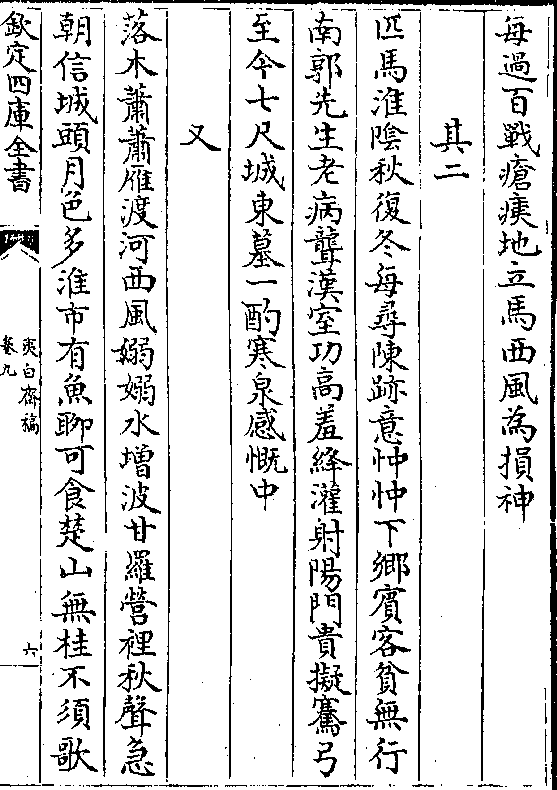 每過百戰瘡痍地立馬西風為損神
其二
匹馬淮陰秋復冬每尋陳跡意忡忡下鄉賓客貧無行
南郭先生老病聾漢室功高羞絳灌射陽門貴擬騫弓
至今七尺城東墓一酌寒泉感慨中
又
落木蕭蕭雁渡河西風嫋嫋水增波甘羅營裡秋聲急
朝信城頭月色多淮市有魚聊可食楚山無桂不須歌
欽定四庫全書
夷白齋稿
卷九
六